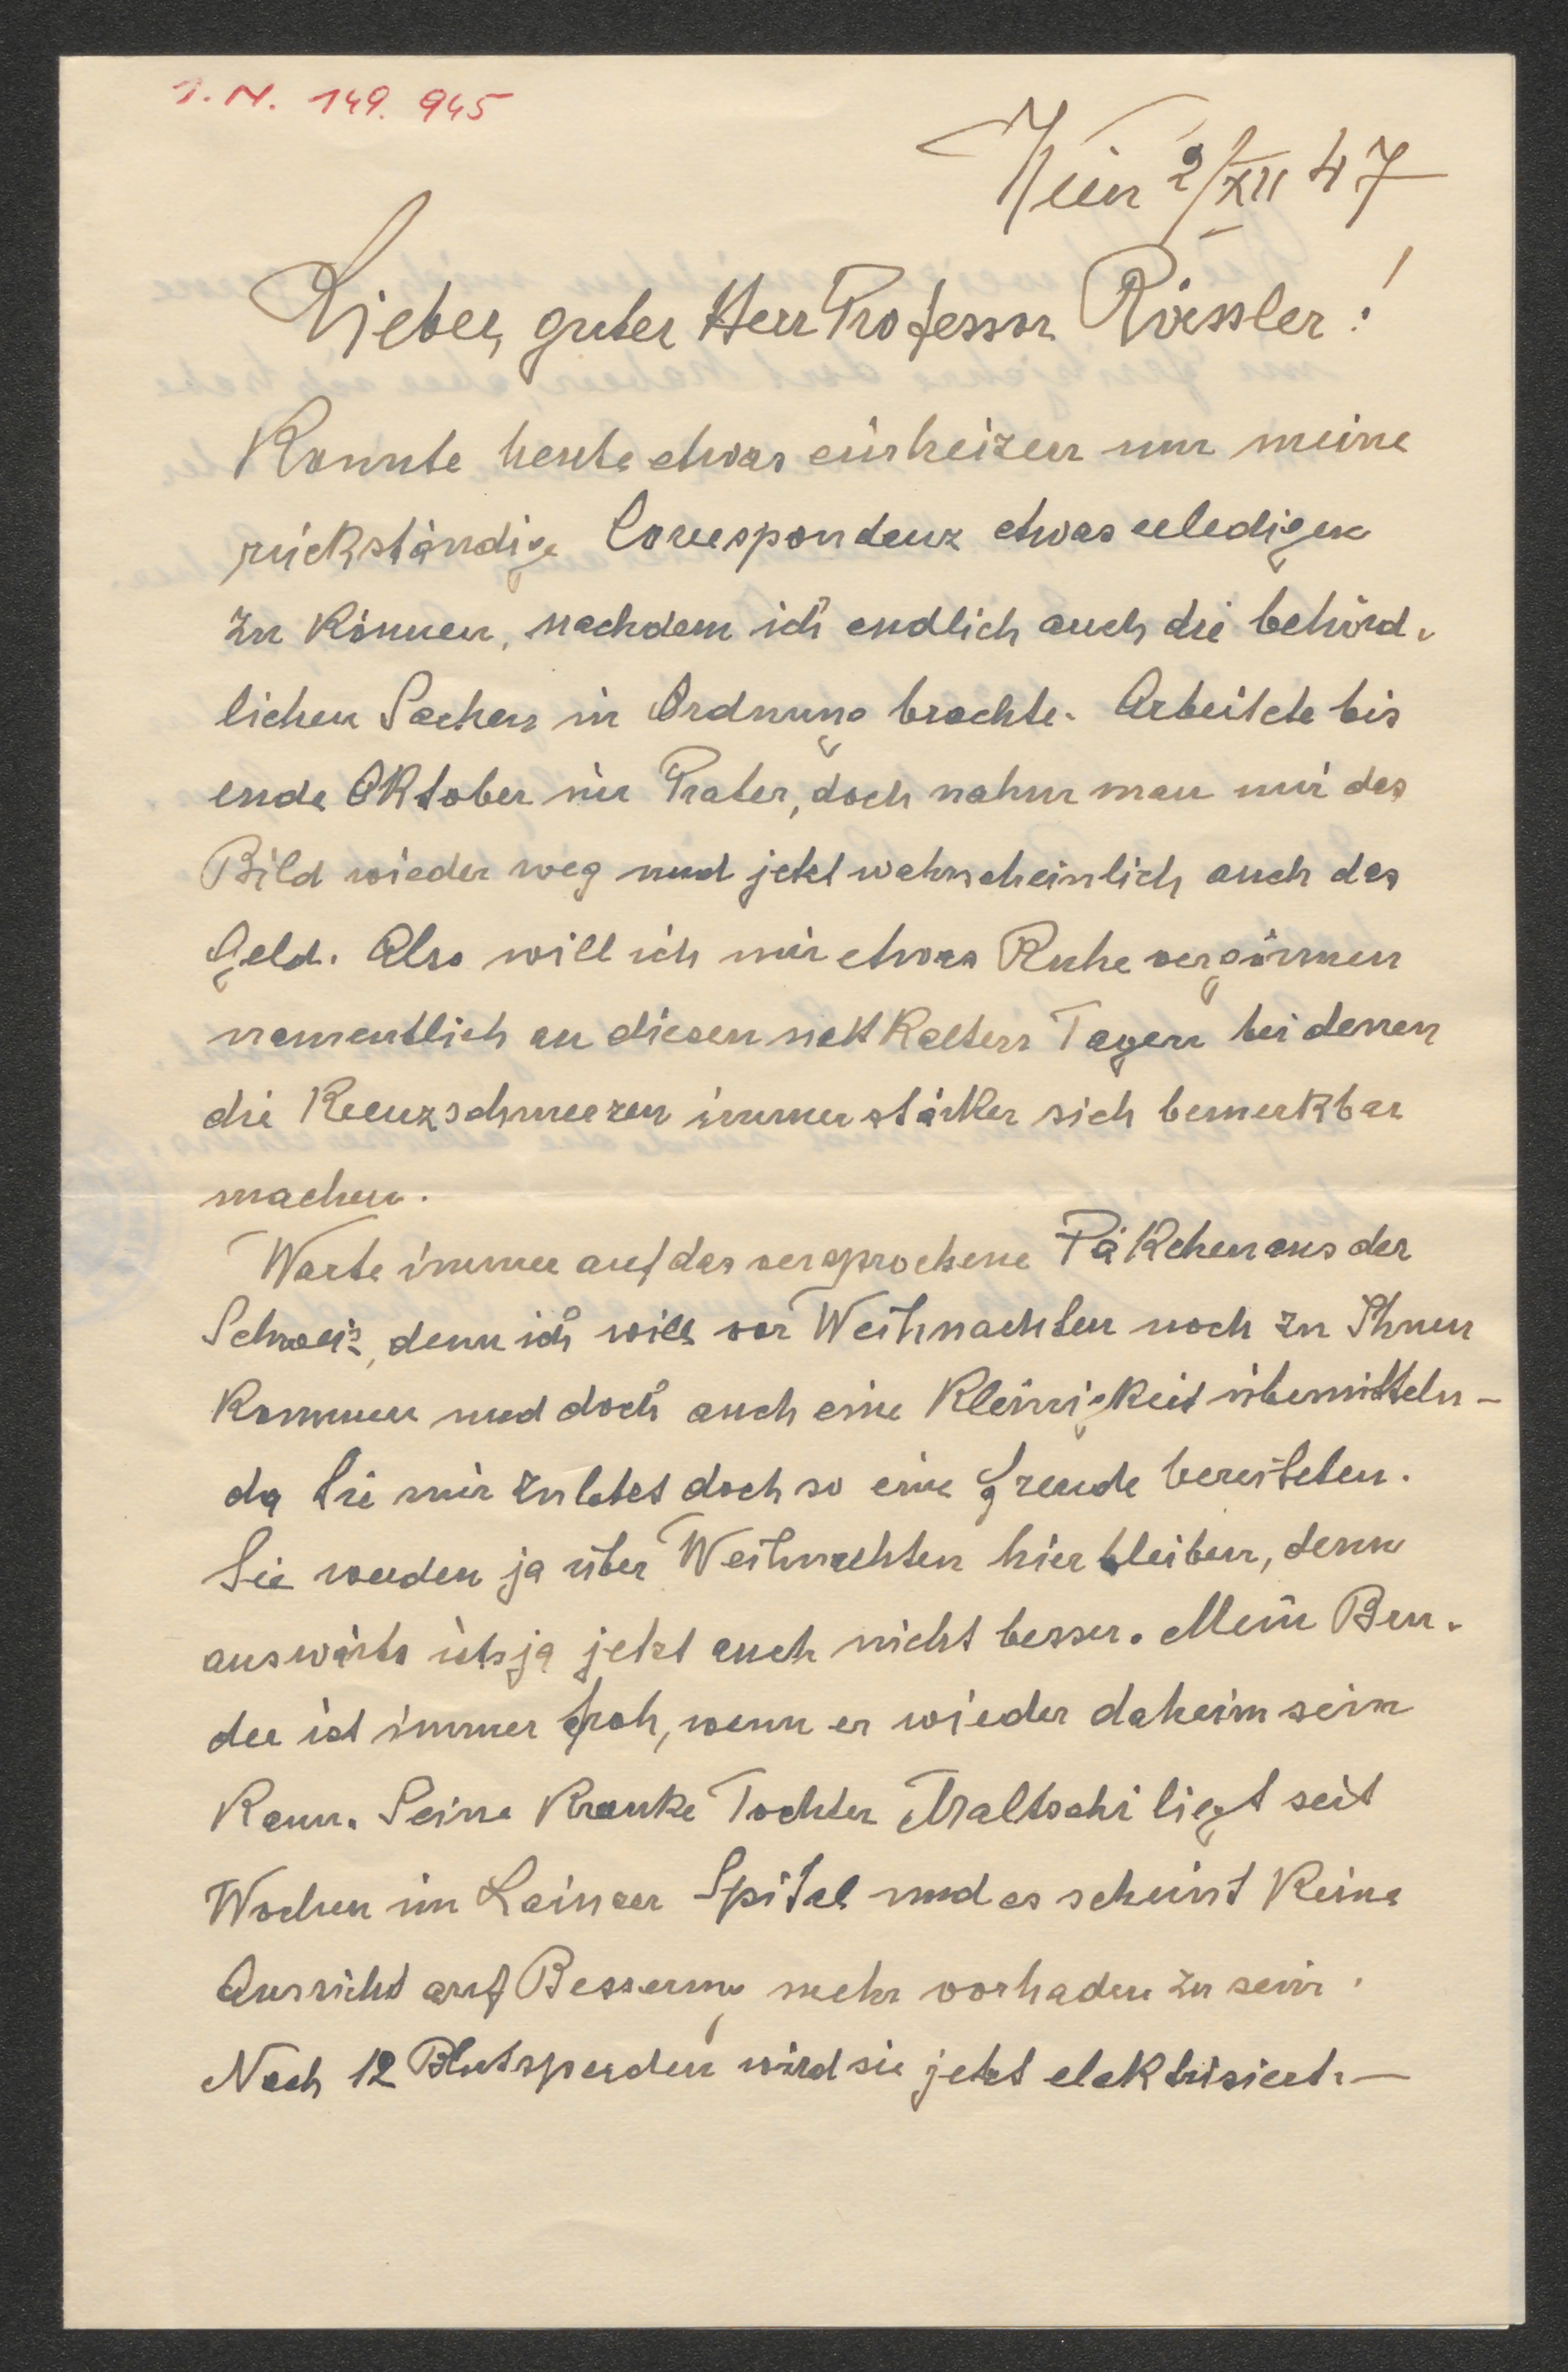 I. N. 149.945
Wien 2/XII 47
Lieber, guter Herr Professor Roessler!
Konnte heute etwas einheizen um meine
rückständige Correspondenz etwas erledigen
zu können, nachdem ich endlich auch die behörd-
lichen Sachen in Ordnung brachte. Arbeitete bis
ende Oktober im Prater, doch nahm man mir das
Bild wieder weg und jetzt wahrscheinlich auch das
Geld. Also will ich mir etwas Ruhe vergönnen
namentlich an diesen naßkalten Tagen bei denen
die Kreuzschmerzen immer stärker sich bemerkbar
machen.
Warte immer auf das versprochene Päkchen aus der
Schweiz, denn ich will vor Weihnachten noch zu Ihnen
kommen und doch auch eine Kleinigkeit übermitteln –
da Sie mir zuletzt doch so eine Freude bereiteten.
Sie werden ja über Weihnachten hier bleiben, denn
auswärts ists ja jetzt auch nicht besser. Mein Bru-
der ist immer froh, wenn er wieder daheim sein
kann. Seine kranke Tochter Maltschi liegt seit
Wochen im Lainzer Spital und es scheint keine
Aussicht auf Besserung mehr vorhaden zu sein.
Nach 12 Blutspenden wird sie jetzt elektrisiert. —